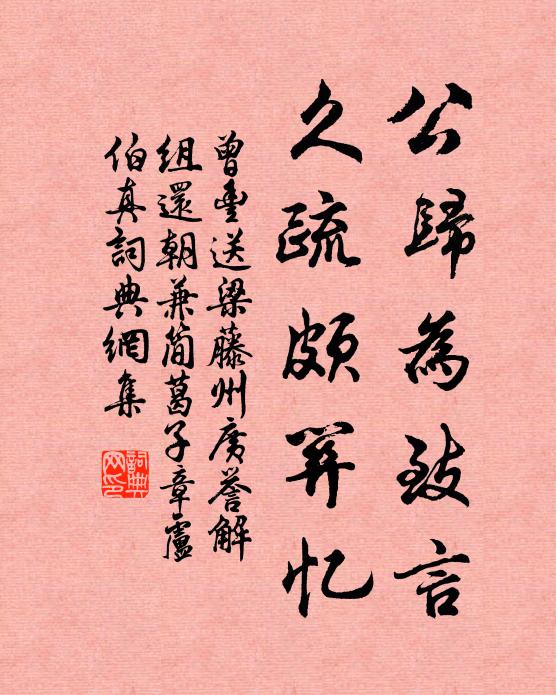 公歸為致言
久疏頗羿忆
曾豐送梁藤州廣譽解
組還朝兼簡葛子章盧
伯真詞典網集
詞典
网印